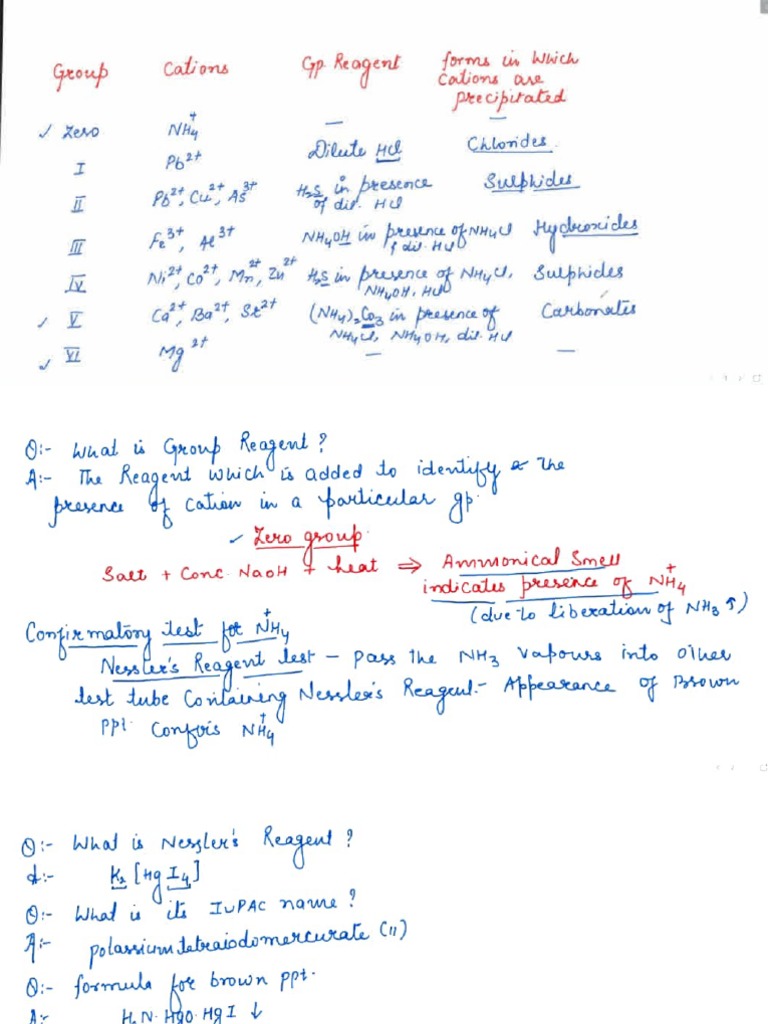 Group Cations Gp Reagent forms in which cations are precipitated
✓ Zero NH4+ — —
I Pb2+ Dilute HCl Chlorides
II Pb2+, Cu2+, As3+ H2S in presence of dil. HCl Sulphides
III Fe3+, Al3+ NH4OH in presence of NH4Cl & dil. HCl Hydroxides
IV Ni2+, Co2+, Mn2+, Zn2+ H2S in presence of NH4Cl, NH4OH, HCl Sulphides
✓ V Ca2+, Ba2+, Sr2+ (NH4)2CO3 in presence of NH4Cl, NH4OH, dil. HCl Carbonates
✓ VI Mg2+ — —
Q:- What is Group Reagent?
A:- The Reagent which is added to identify the
presence of cation in a particular gp.
✓ Zero group
Salt + Conc. NaOH + heat ⇒ Ammonical Smell
indicates presence of NH4+
(due to liberation of NH3 ↑)
Confirmatory test for NH4+
Nessler's Reagent test – pass the NH3 vapours into other
test tube containing Nessler's Reagent – Appearance of Brown
ppt. NH4+
Q:- What is Nessler's Reagent?
A:- K2[HgI4]
Q:- What is its IUPAC name?
A:- potassium tetraiodomercurate (II)
Q:- formula for brown ppt.
A:- H2N·HgO·HgI ↓